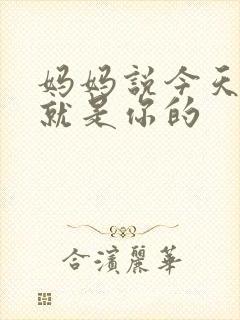 妈妈説今天
就是你的
合濱麗華